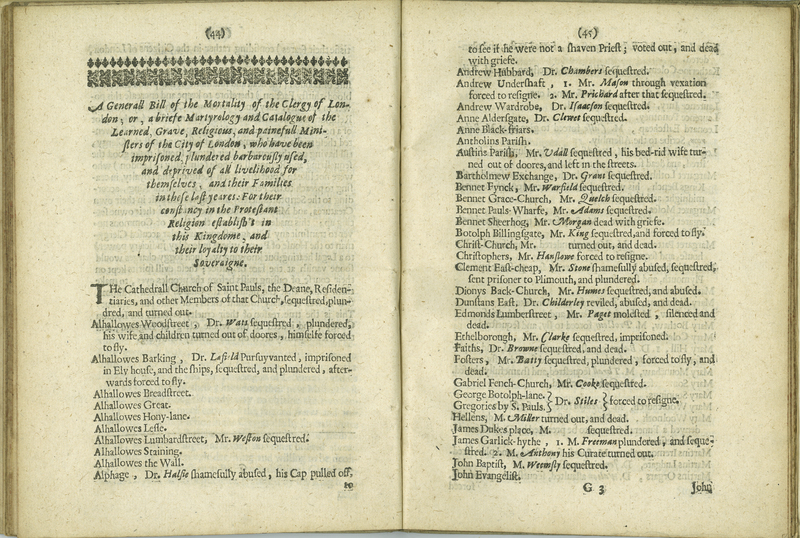 (44)
A Generall Bill of the Mortality of the Clergy of Lon-
don; or, a briefe Martyrology and Catalogue of the
Learned, Grave, Religious, and painefull Mini-
sters of the City of London, who have been
imprisoned, plundered barbarously used,
and deprived of all livelihood for
themselves, and their Families
in these last yeares: For their
constancy in the Protestant
Religion establish't in
this Kingdome, and
their loyalty to their
Soveraigne.
THe Cathedrall Church of Saint Pauls, the Deane, Residen-
tiaries, and other Members of that Church, sequestred, plun-
dred, and turned out.
Alhallowes Woodstreet, Dr. Wats sequestred, plundered,
his wife and children turned out of doores, himselfe forced
to fly.
Alhallowes Barking, Dr. Lasild Pursuyvanted, imprisoned
in Ely house, and the ships, sequestred, and plundered, after-
wards forced to fly.
Alhallowes Breadstreet.
Alhallowes Great.
Alhallowes Hony-lane.
Alhallowes Lesse.
Alhallowes Lumbardstreet, Mr. Weston sequestred.
Alhallowes Staining.
Alhallowes the Wall.
Alphage, Dr. Halsie shamefully abused, his Cap pulled off,
to
(45)
to see if he were not a shaven Priest; voted out, and dead
with griefe.
Andrew Hubbard, Dr. Chambers sequestred.
Andrew Undershaft, 1. Mr. Mason through vexation
forced to resigne. 2. Mr. Prichard after that sequestred.
Andrew Wardrobe, Dr. Isaacson sequestred.
Anne Aldersgate, Dr. Clewet sequestred.
Anne Black-friars.
Antholins Parish.
Austins Parish, Mr. Udall sequestred, his bed-rid wife tur-
ned out of doores, and left in the streets.
Bartholmew Exchange, Dr. Grant sequestred.
Bennet Fynck, Mr. Warfield sequestred.
Bennet Grace-Church, Mr. Quelch sequestred.
Bennet Pauls-Wharfe, Mr. Adams sequestred.
Bennet Sheerhog, Mr. Morgan dead with griefe.
Botolph Billingsgate, Mr. King sequestred, and forced to fly.
Christ-Church, Mr. turned out, and dead.
Christophers, Mr. Hanslowe forced to resigne.
Clement East-cheap, Mr. Stone shamefully abused, sequestred,
sent prisoner to Plimouth, and plundered.
Dionys Back-Church, Mr. Humes sequestred, and abused.
Dunstans East, Dr. Childerley reviled, abused, and dead.
Edmonds Lumberstreet, Mr. Paget molested, silenced and
dead.
Ethelborough, Mr. Clarke sequestred, imprisoned.
Faiths, Dr. Browne sequestred, and dead.
Fosters, Mr. Batty sequestred, plundered, forced to fly, and
dead.
Gabriel Fench-Church, Mr. Cooke sequestred.
George Botolph-lane.
Gregories by S. Pauls. } Dr. Stiles } forced to resigne.
Hellens, M. Miller turned out, and dead.
James Dukes place, M. sequestred.
James Garlick-hythe, 1. M. Freeman plundered, and seque-
stred. 2. M. Anthony his Curate turned out.
John Baptist, M. Weemsly sequestred.
John Evangelist.
G 3 John